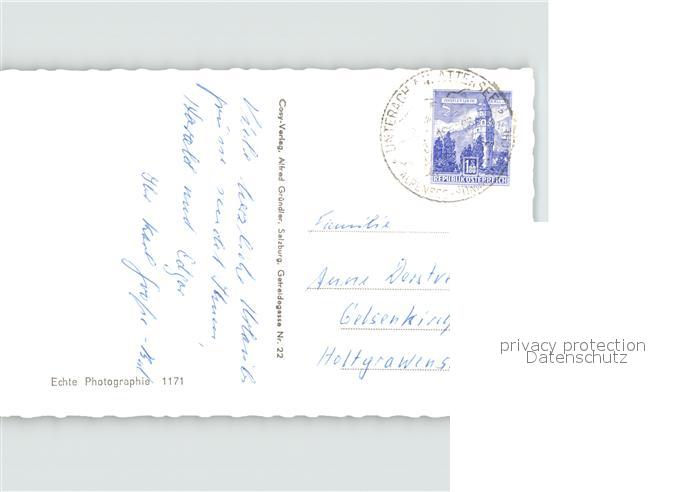 Viele herzliche Urlaubs
grüsse sendet Ihnen,
Harald und Edgar
Ihr Karl
Cosy-Verlag, Alfred Gründler, Salzburg, Getreidegasse Nr. 22
Echte Photographie 1171
UNTERACH AM ATTERSEE
1.80
REPUBLIK ÖSTERREICH
Familie
Anne
Gelsenkirch
privacy protection
Datenschutz